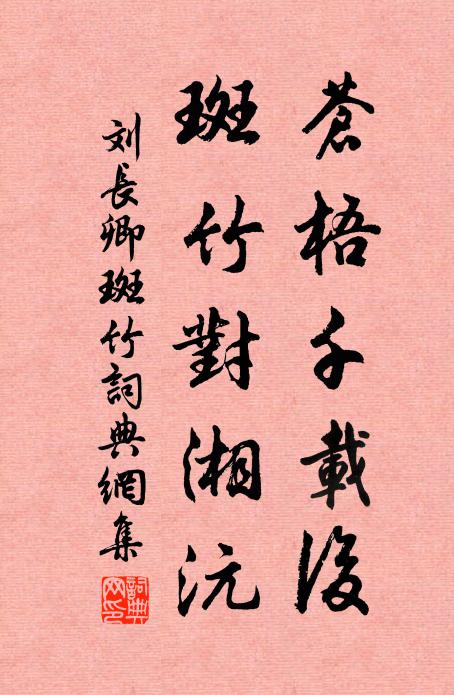 蒼梧千載後
斑竹對湘沅
刘長卿斑竹詞典網集
詞典網印